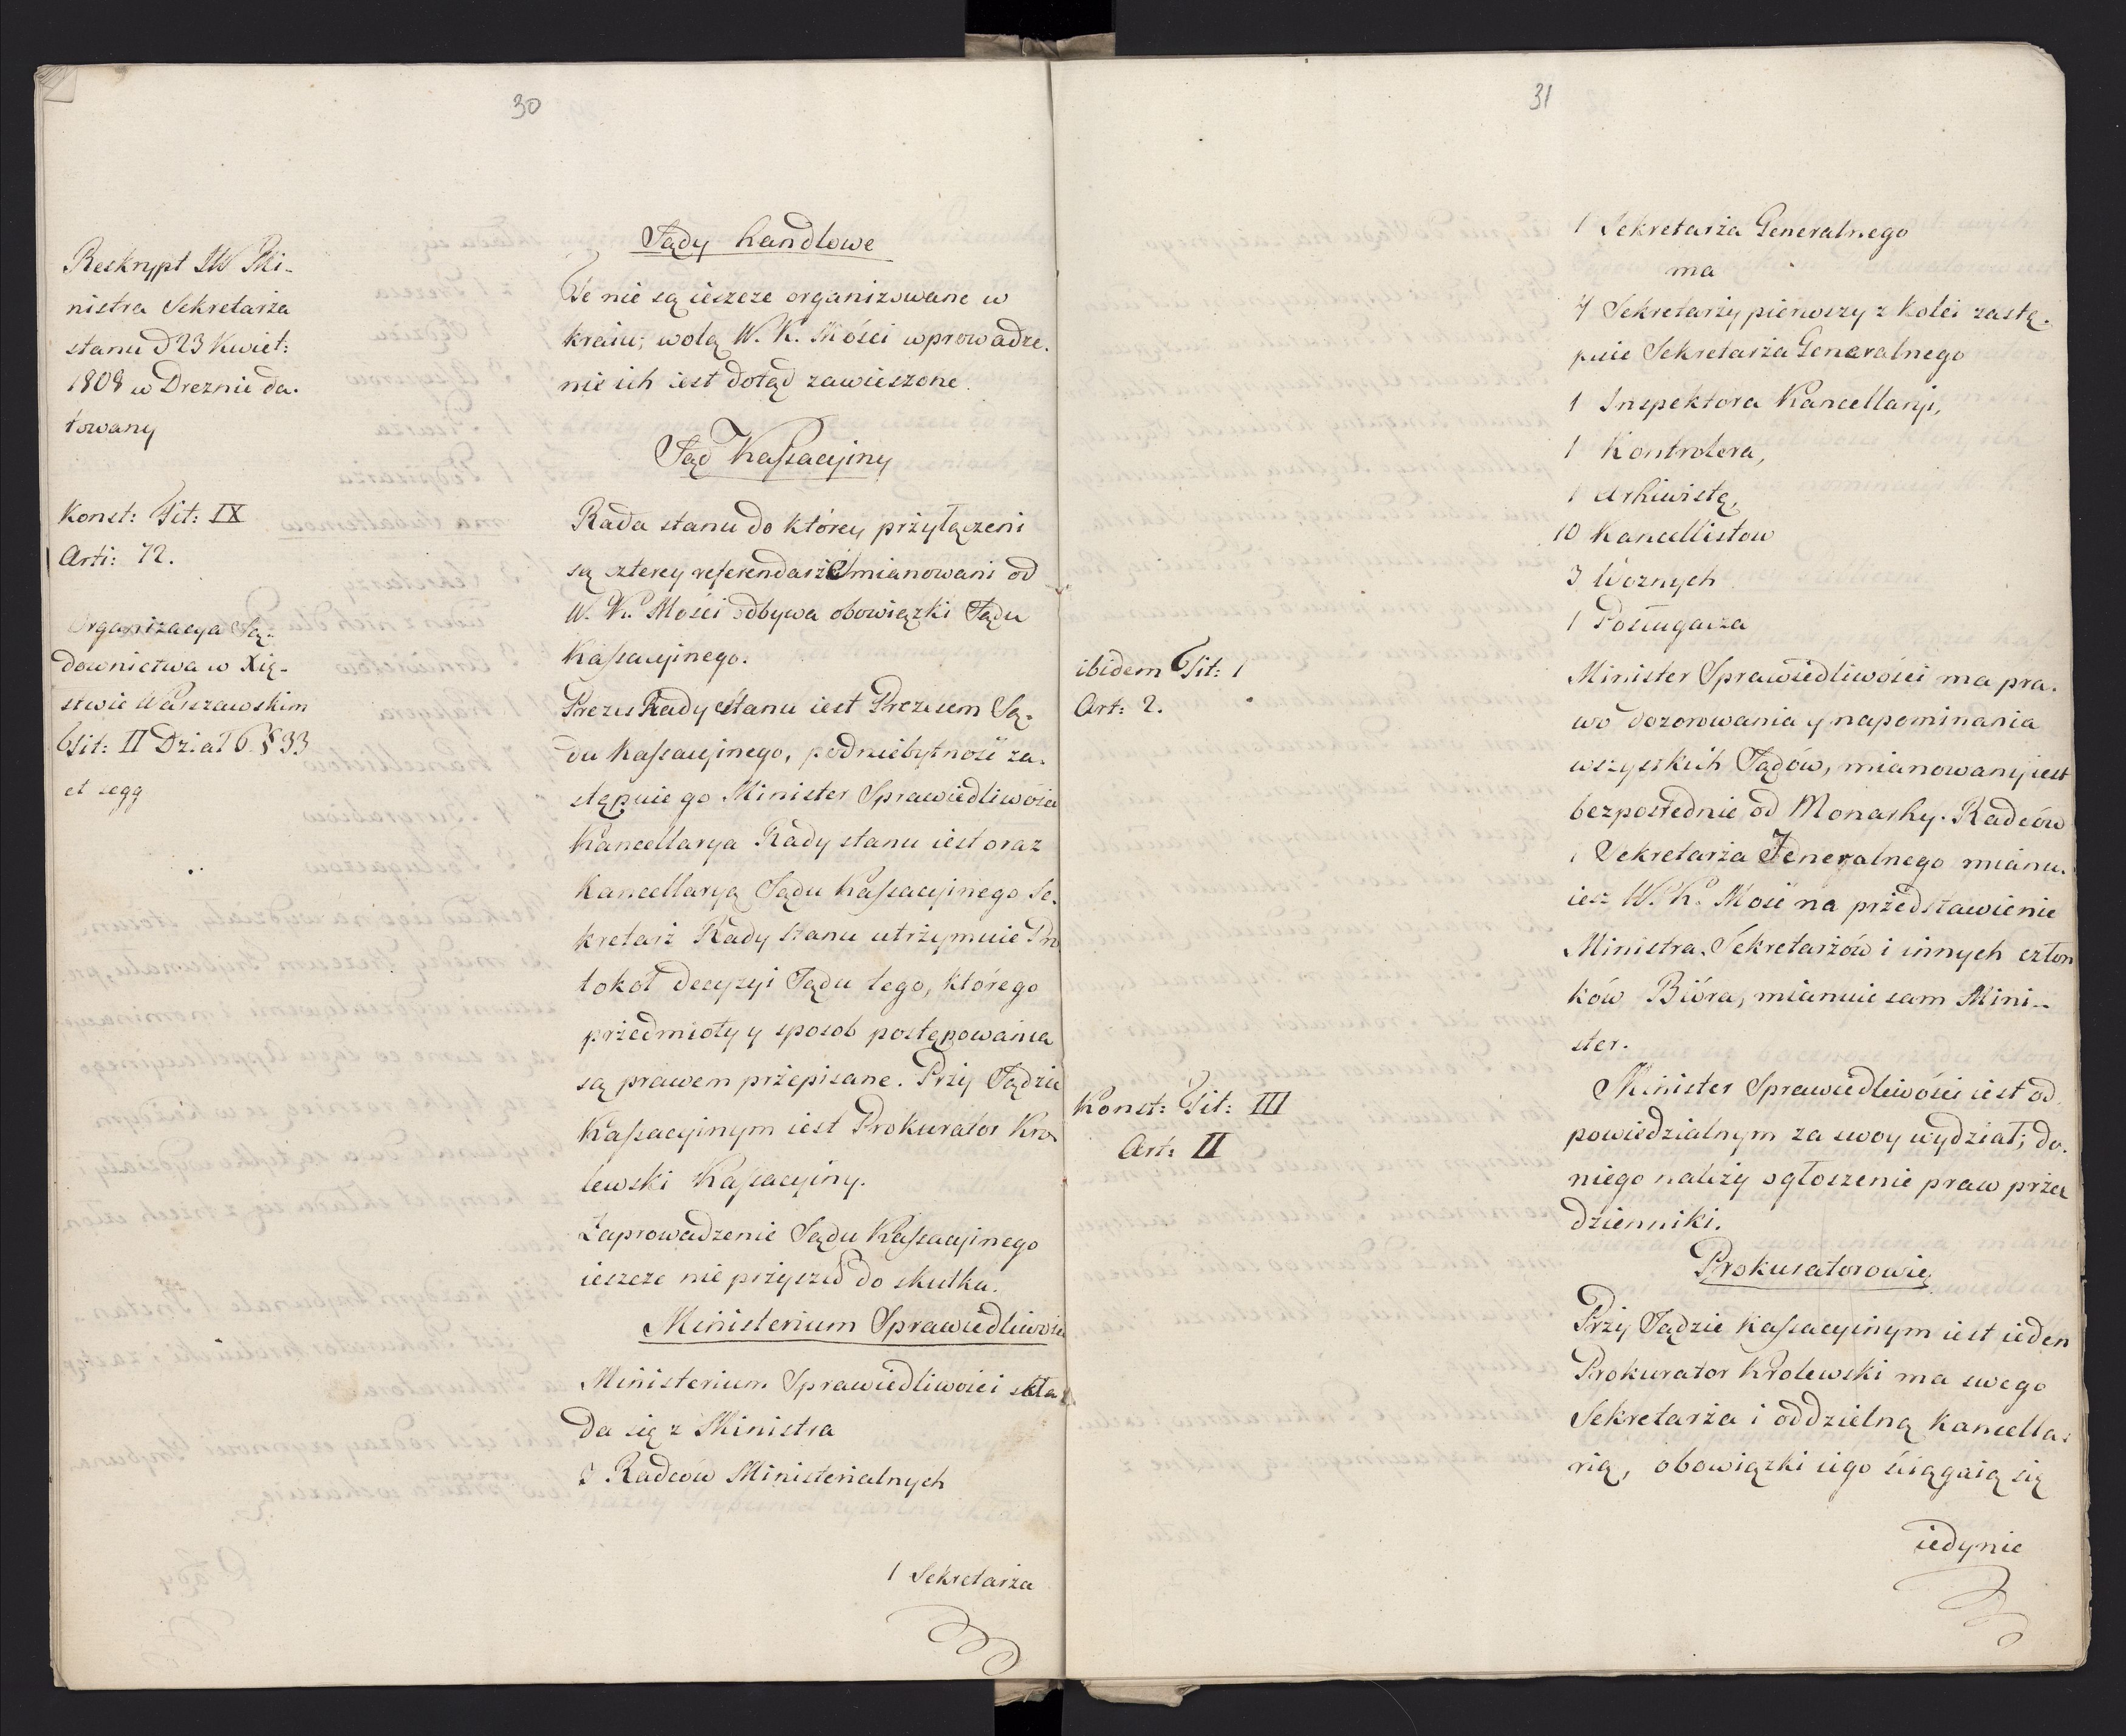 30
Reskrypt JW Mi-
nistra Sekretarza
stanu d 23 Kwiet:
1808 w Dreznie da-
towany
Konst: Tit: IX
Arti: 72.
Organizacya Są-
downictwa w Xię-
stwie Warszawskim
Tit: II Dział 6 § 33
et segg
Sądy handlowe
Te nie są ieszcze organizowane w
kraiu; wolą W. K. Mości wprowadze-
nie ich iest dotąd zawieszone.
Sąd Kassacyiny
Rada stanu do którey przyłączeni
są czterey referendarze mianowani od
W. K. Mości odbywa obowiązki Sądu
Kassacyinego.
Prezes Rady stanu iest Prezesem Są-
du Kassacyinego, pod niebytność za-
stępuie go Minister Sprawiedliwości
Kancellarya Rady stanu iest oraz
Kancellaryą Sądu Kassacyinego Se-
kretarz Rady stanu utrzymuie Pro
tokoł decyzyi Sądu tego, którego
przedmioty y sposob postępowania
są prawem przepisane. Przy Sądzie
Kassacyinym iest Prokurator Kro-
lewski Kassacyiny.
Zaprowadzenie Sądu Kassacyinego
ieszcze nie przyszło do skutku.
Ministerium Sprawiedliwości
Ministerium Sprawiedliwości skła-
da się z Ministra
Radców Ministerialnych
1 Sekretarza
31
ibidem Tit: 1
Art: 2.
Konst: Tit: III
Art: II
1 Sekretarza Generalnego
ma
7 Sekretarzy pierwszy z kolei zastę-
puie Sekretarza Generalnego
1 Inspektora Kancellaryi,
1 Kontrolera,
1 Arhiwistę,
10 Kancellistow
3 Woznych
1 Posługacza
Minister Sprawiedliwości ma pra-
wo dozorowania y napominania
wszyskich Sądów, mianowany iest
bezpośrednie od Monarhy. Radców
i Sekretarza Jeneralnego mianu-
iesz W. K. Mość na przedstawienie
Ministra. Sekretarzów i innych człon
ków Bióra, mianuie sam Mini-
ster.
Minister Sprawiedliwości iest od-
powiedzialnym za swoy wydział; do-
niego należy ogłoszenie praw przez
dzienniki.
Prokuratorowie
Przy Sądzie Kassacyinym iest ieden
Prokurator Krolewski ma swego
Sekretarza i oddzielną Kancella-
rią, obowiązki iego ściągaią się
iedynie